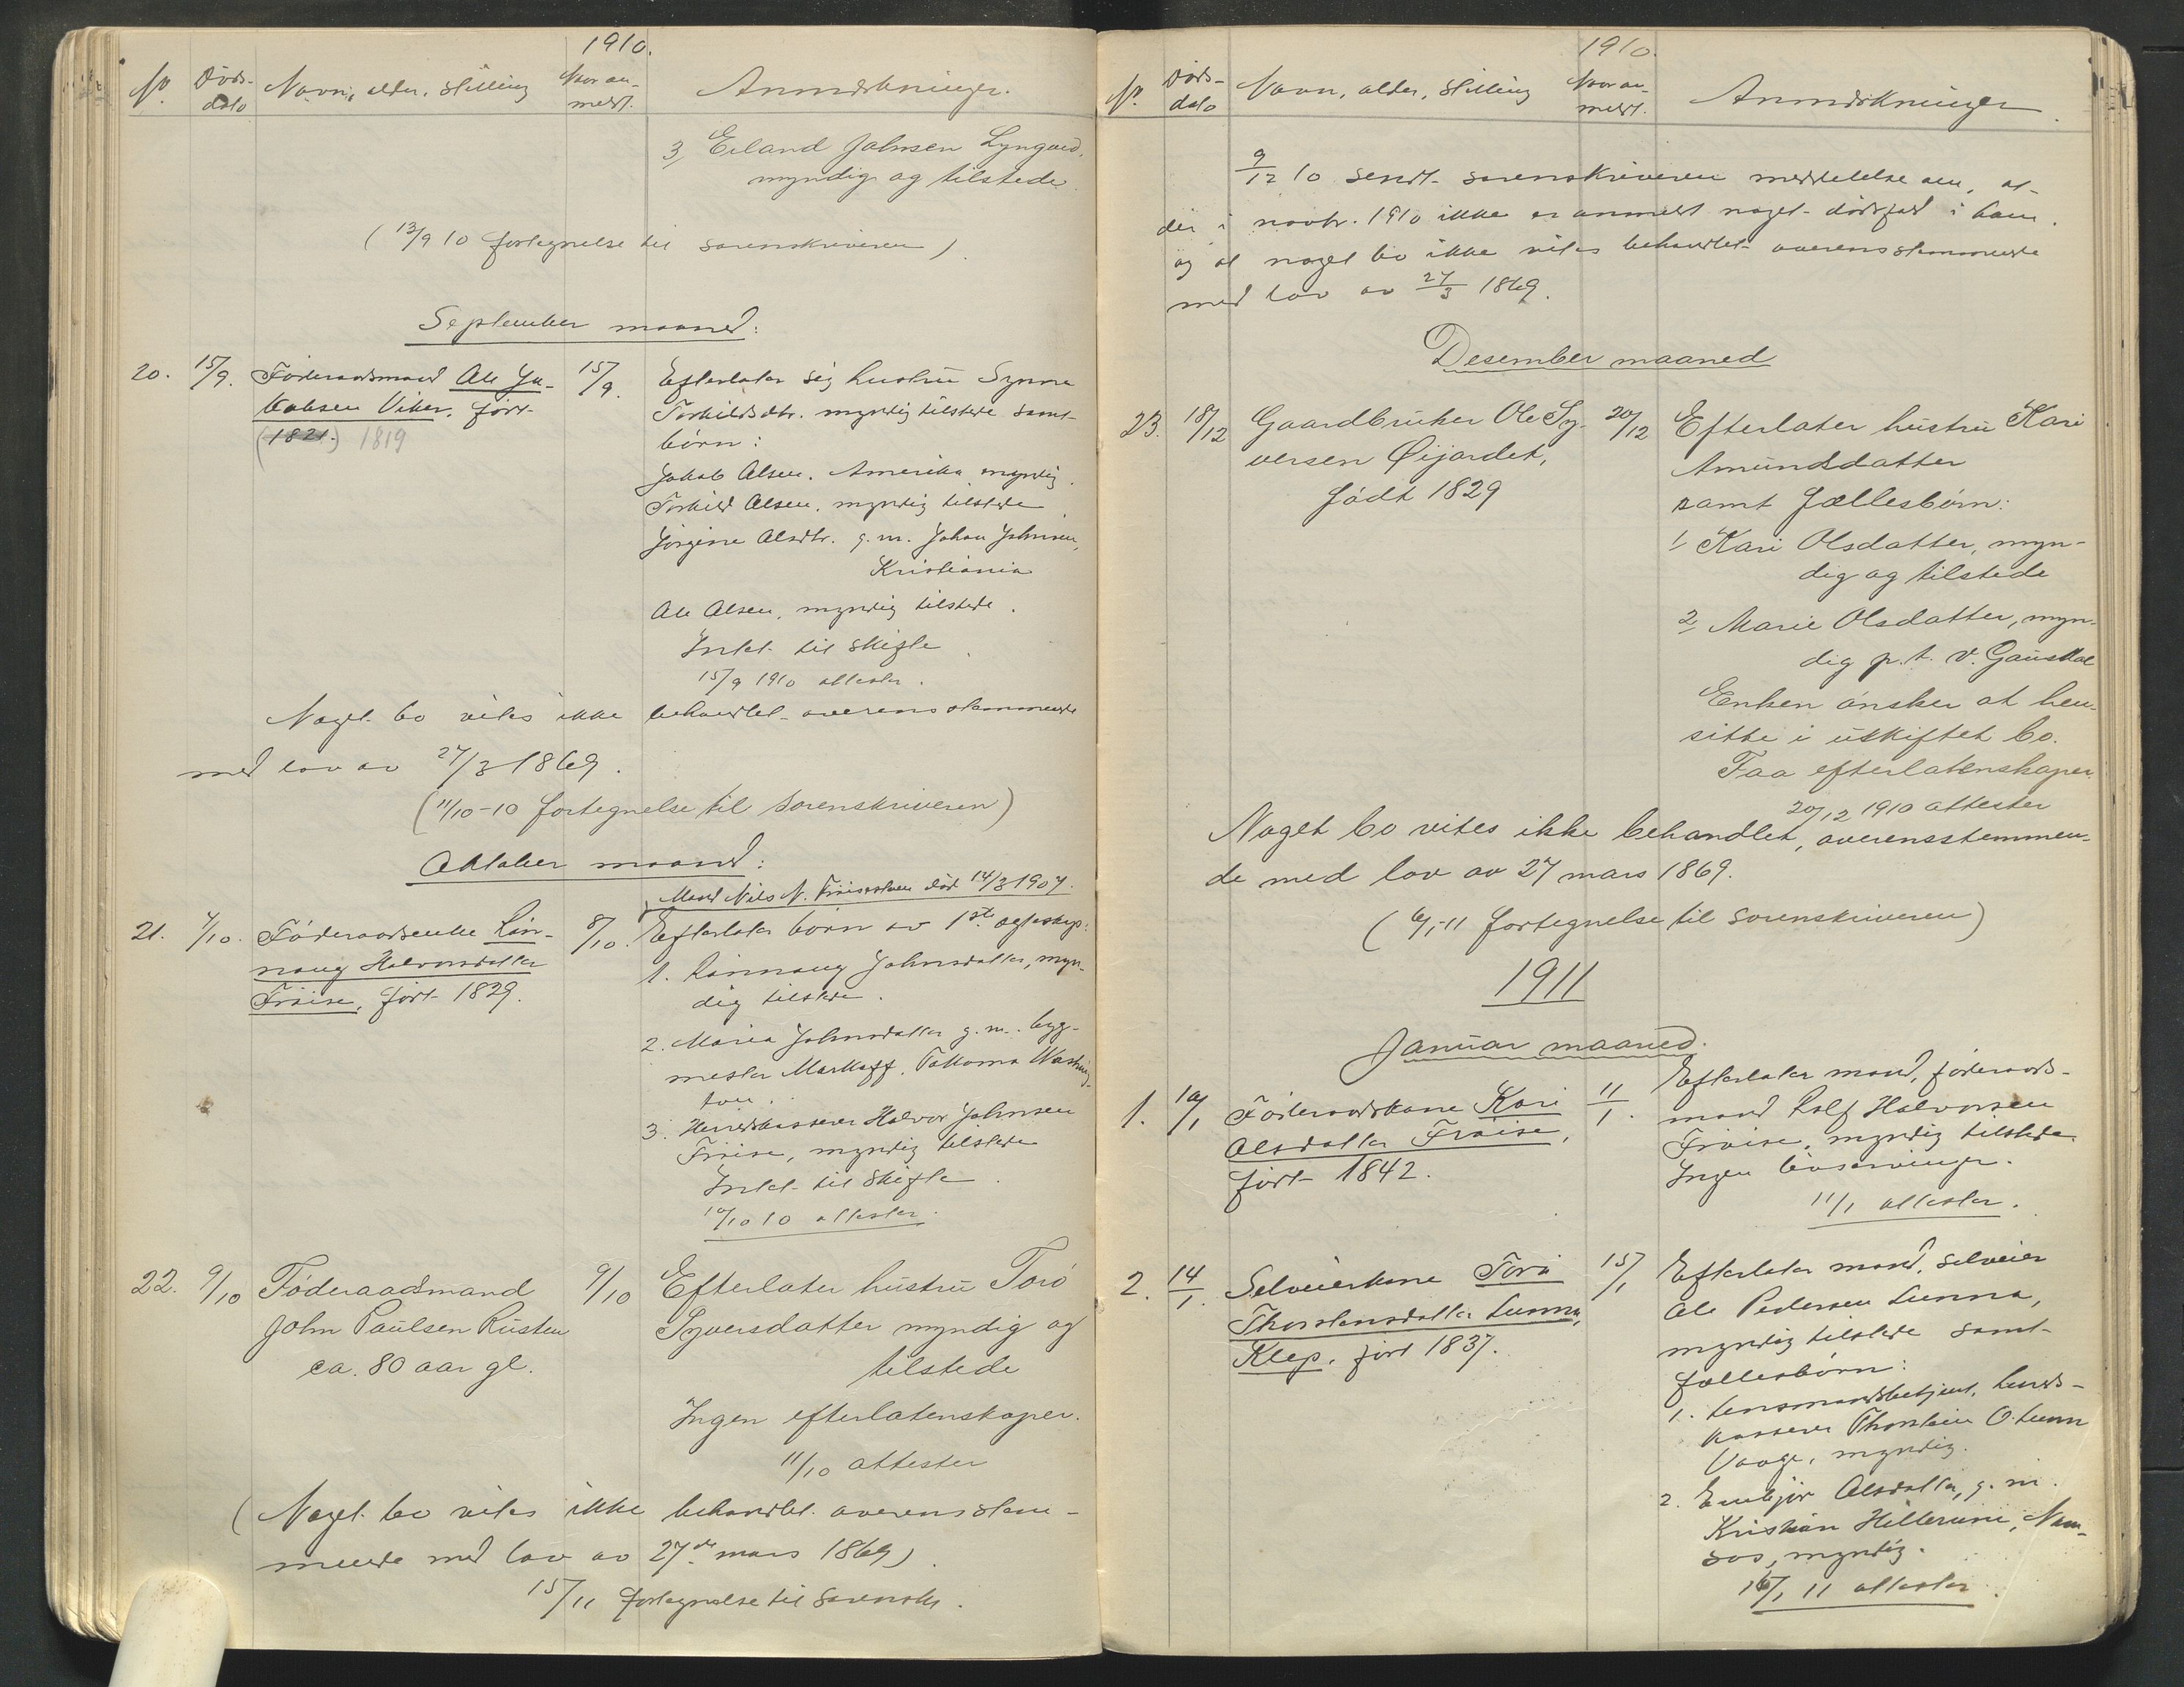 1910.
No Døds- dato Navn, alder, stilling Naar an- meldt. Anmerkninger.
3, Erland Johnsen Lyngaas,
myndig og tilstede.
(13/9 10 fortegnelse til sorenskriveren).
September maaned:
20. 15/9. Føderaadsmand Ole Ja-
kobsen Viker, født
(1821.) 1819
15/9. Efterlater sig hustru Synna
Torkildsdtr. myndig tilstede samt
børn:
Jakob Olsen, Amerika, myndig.
Torkild Olsen, myndig tilstede
Jørgine Olsdtr. g. m. Johan Johnsen,
Kristiania
Ole Olsen, myndig tilstede.
Intet til skifte.
15/9 1910 attester.
Noget bo vites ikke behandlet overensstemmende
med lov av 27/3 1869.
(11/10-10 fortegnelse til sorenskriveren)
Oktober maaned:
21. 7/10. Føderaadsenke Rön-
naug Halvorsdatter
Fröise, født 1829.
8/10. Mand Nils N. Fröise død 14/3 1907.
Efterlater börn av 1ste egteskap:
1. Rönnaug Johnsdatter, myn-
dig tilstede.
2. Maria Johnsdatter g. m. byg-
mester Markoff, Takoma Washing-
ton.
3. Herredskasserer Halvor Johnsen
Fröise, myndig tilstede
Intet til skifte.
10/10 10 attester.
22. 9/10 Föderaadsmand
John Paulsen Rusten
ca. 80 aar gl.
9/10 Efterlater hustru Toro
Syversdatter myndig og
tilstede
Ingen efterlatenskaper.
11/10 attester
(Noget bo vites ikke behandlet overensstem-
mende med lov av 27de mars 1869).
15/11 fortegnelse til sorenskr.
1910.
No. Døds- dato Navn, alder, stilling Naar an- meldt. Anmerkninger.
9/12 10 sendt sorenskriveren meddelelse om, at
der i novbr. 1910 ikke er anmeldt noget dødsfald i
og at noget bo ikke vites behandlet overensstemmende
med lov av 27/3 1869.
Desember maaned
23. 18/12 Gaardbruker Ole Sy-
versen Øijordet,
födt 1829
20/12 Efterlater hustru Kari
Amundsdatter
samt fællesbörn:
1, Kari Olsdatter, myn-
dig og tilstede
2, Marie Olsdatter, myn-
dig p. t. V. Gausdal
Enken önsker at hen-
sitte i uskiftet bo.
Faa efterlatenskaper.
20/12 1910 attester
Noget bo vites ikke behandlet, overensstemmen-
de med lov av 27 mars 1869.
(6/1-11 fortegnelse til sorenskriveren)
1911
Januar maaned.
1. 10/1 Föderaadskone Kari
Olsdatter Fröise,
født 1842.
11/1. Efterlater mand, föderaads-
mand Rolf Halvorsen
Fröise, myndig tilstede
Ingen livsarvinger.
11/1 attester.
2. 14/1. Selveierkone Toro
Thorstensdatter Lunna,
Klep, født 1837.
15/1 Efterlater mand, selveier
Ole Pedersen Lunna,
myndig tilstede samt
fællesbörn:
1. Lensmandsbetjent, herreds-
kasserer Thorstein O. Lunn
Vaage, myndig.
2. Embjør Olsdatter, g. m.
Kristian Hillerum, Nam-
sos, myndig.
16/1 11 attester.